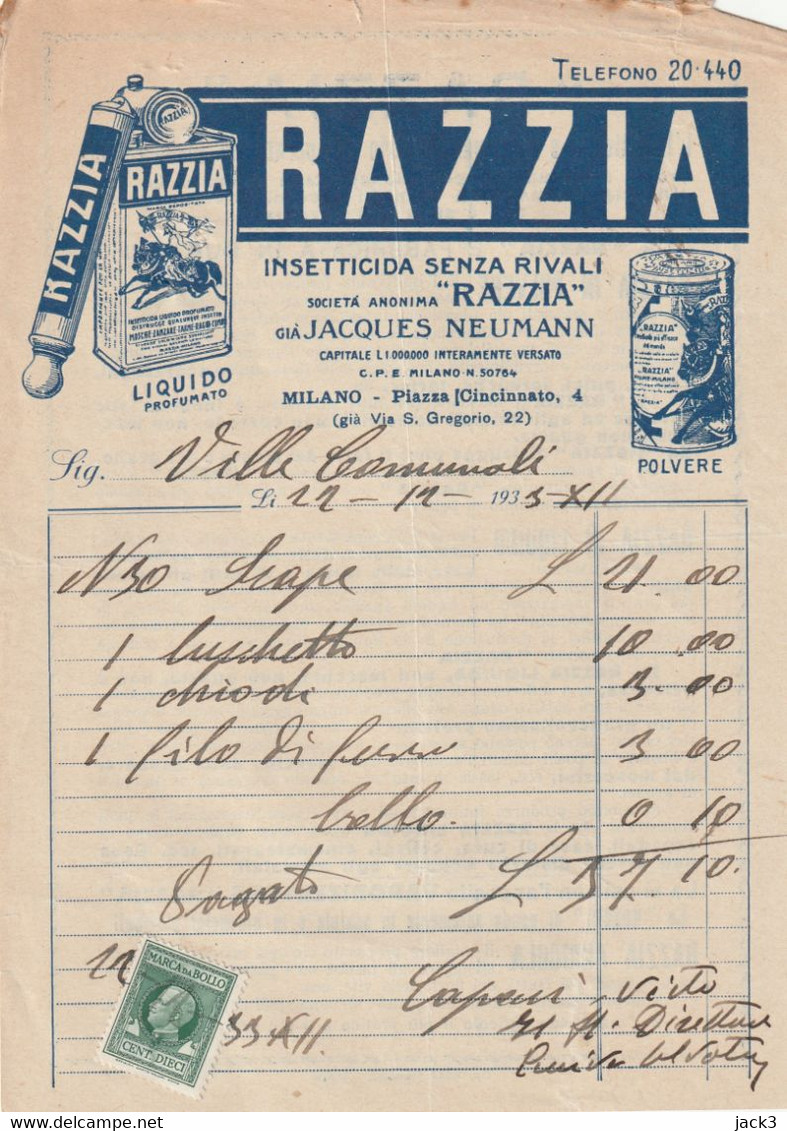 TELEFONO 20·440
RAZZIA
RAZZIA
RAZZIA
RAZZIA
INSETTICIDA SENZA RIVALI
SOCIETÁ ANONIMA "RAZZIA"
GIÀ JACQUES NEUMANN
CAPITALE L 1000.000 INTERAMENTE VERSATO
C.P.E. MILANO·N. 50764
MILANO - Piazza [Cincinnato, 4
(già Via S. Gregorio, 22)
LIQUIDO
PROFUMATO
"RAZZIA"
"RAZZIA"
POLVERE
Sig. Ville Comunali
Li 22-12-1933-XII
N 30 Scape £ 21.00
1 lucchetto 10.00
1 chiodi 3.00
1 filo di ferro 3 00
bollo. 0 10
Pagato £ 37.10.
22
33.XII.
MARCA DA BOLLO
CENT. DIECI
Visto
Il Direttore
jack3